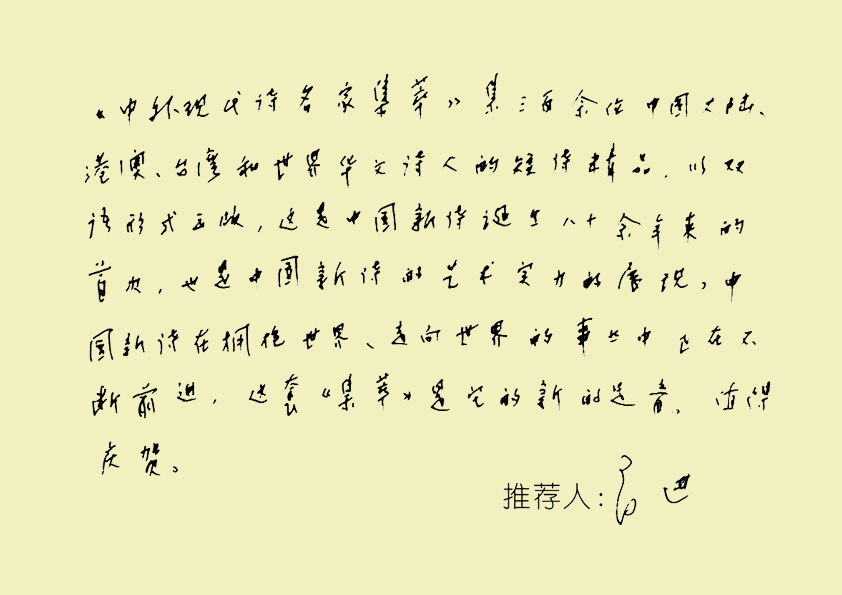 《中外现代诗名家集萃》集三百余位中国大陆、
港澳、台湾和世界华文诗人的短诗精品，以双
语形式出版，这是中国新诗诞生八十余年来的
首次，也是中国新诗的艺术实力的展现，中
国新诗在拥抱世界、走向世界的事业中正在不
断前进，这套《集萃》是它的新的足音，值得
庆贺。
推荐人：